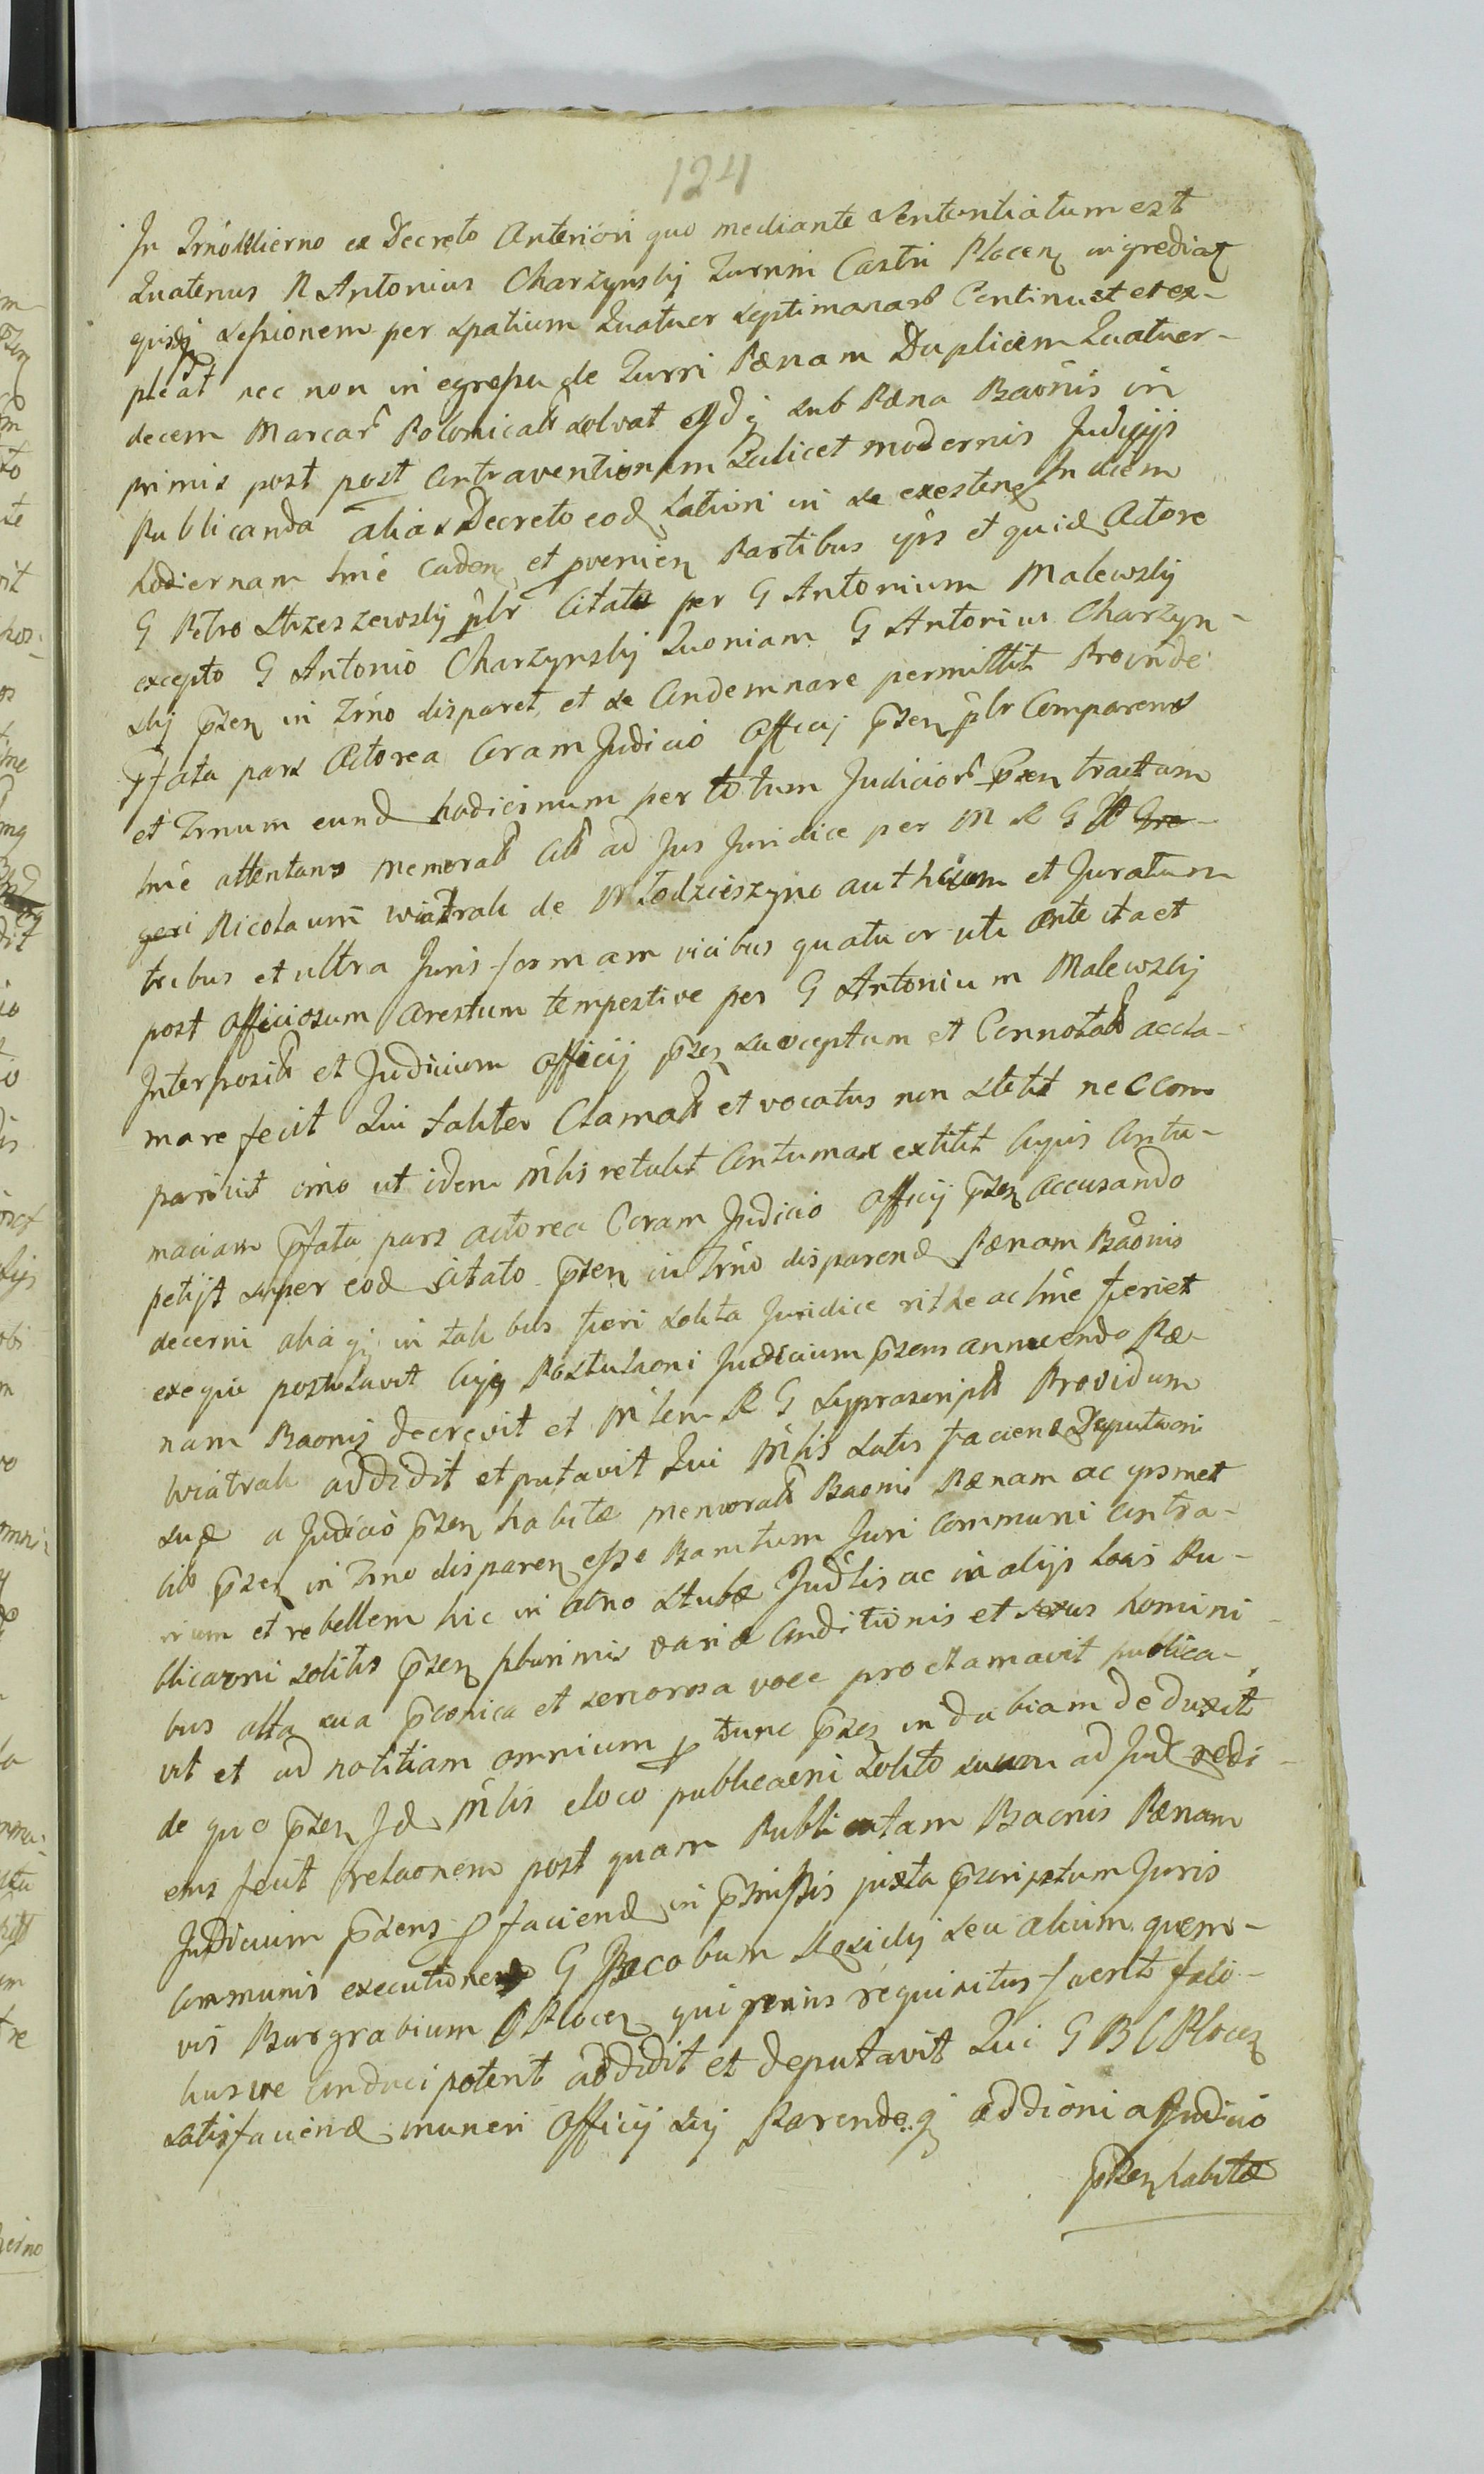 124
In Trno hodierno ex Decreto Anteriori quo mediante Sententiatum est
Quatenus N Antonius Charzynskij Turrim Castri Plocen ingrediat
sessionem per spatium Quatuor septimanar Continuet et ex-
pleat nec non in egressu de Turri Pænam Duplicem Quatuor-
decem Marcar Polonical solvat sub Pæna Baonis in
primis post post Contraventionem Scilicet modernis Judicijs
Publicanda alias Decreto eod Latiori in se existen In diem
hodiernam lmé caden et pvenien Partibus ijsis et quid Actore
G Petro Strzeszewskij plr Citato per G Antonium Malewskij
excepto G Antonio Charzynskij Quoniam G Antonius Charzyn-
skij pnsen in Trno disparet et se Condemnare permittit Proinde
pfata pars Actorea Coram Judicio Officij pnsen plr Comparens
et Trnum eund hodiernum per totum Judicior pnsen tractum
lmé attentans memorat Cit ad Jus Juridice per M R G Gre-
geri Nicolaum Wiatrak de Młodzieszyno authcum et Juratum
tribus et ultra Juris formam vicibus quatuor uti ante ita et
post officiosum Arestum tempestive per G Antonium Malewskij
Interposit et Judicium officij pnsen susceptum et Connotat accla-
mare fecit Qui taliter Clamat et vocatus non stetit nec Com
paruit imo ut idem mlis retulit Contumax extitit Cujus Contu-
maciam pfata pars actorea Coram Judicio Officij pnsen Accusando
petijt super eod citato pnsen in Trno disparend Pænam Baonis
decerni aliaq in talibus fieri solita Juridice ritte ac lmé fieri et
exequi postulavit Cujq Postulaoni Judicium pnsens annuendo Pæ-
nam Baonis decrevit et Mlem R G suprascript Providum
Wiatrak addidit et putavit Qui Mlis satis faciend Deputaoni
suæ a Judicio pnsen habitæ memorat Baonis Pænam ac ipsmet
cito pnsen in Trno disparen esse Banitum Juri Communi Contra-
rium et rebellem hic in atrio Stubæ Judlis ac in alijs Locis Pu-
blicaoni solitis pnsen plurimis variæ Conditionis et sexus homini-
bus alta sua pconica et sonorosa voce proclamavit publica-
vit et ad notitiam omnium p tunc pnsen indubiam deduxit
de quo pnsen Id Mlis eloco publicaoni solito suum ad Jud redi-
ens fecit relaonem post quam Publicatam Baonis Pænam
Judicium pnsens p faciend in pmissis juxta pscriptum Juris
Communis executione G Jacobum seu alium quem-
vis Burgrabium C Plocen qui prius requisitus fuerit felic-
iusve Conduci poterit addidit et deputavit Qui G B C Plocen
satisfaciend muneri officij sui Parendoq addioni a Judicio
pnsen habitæ